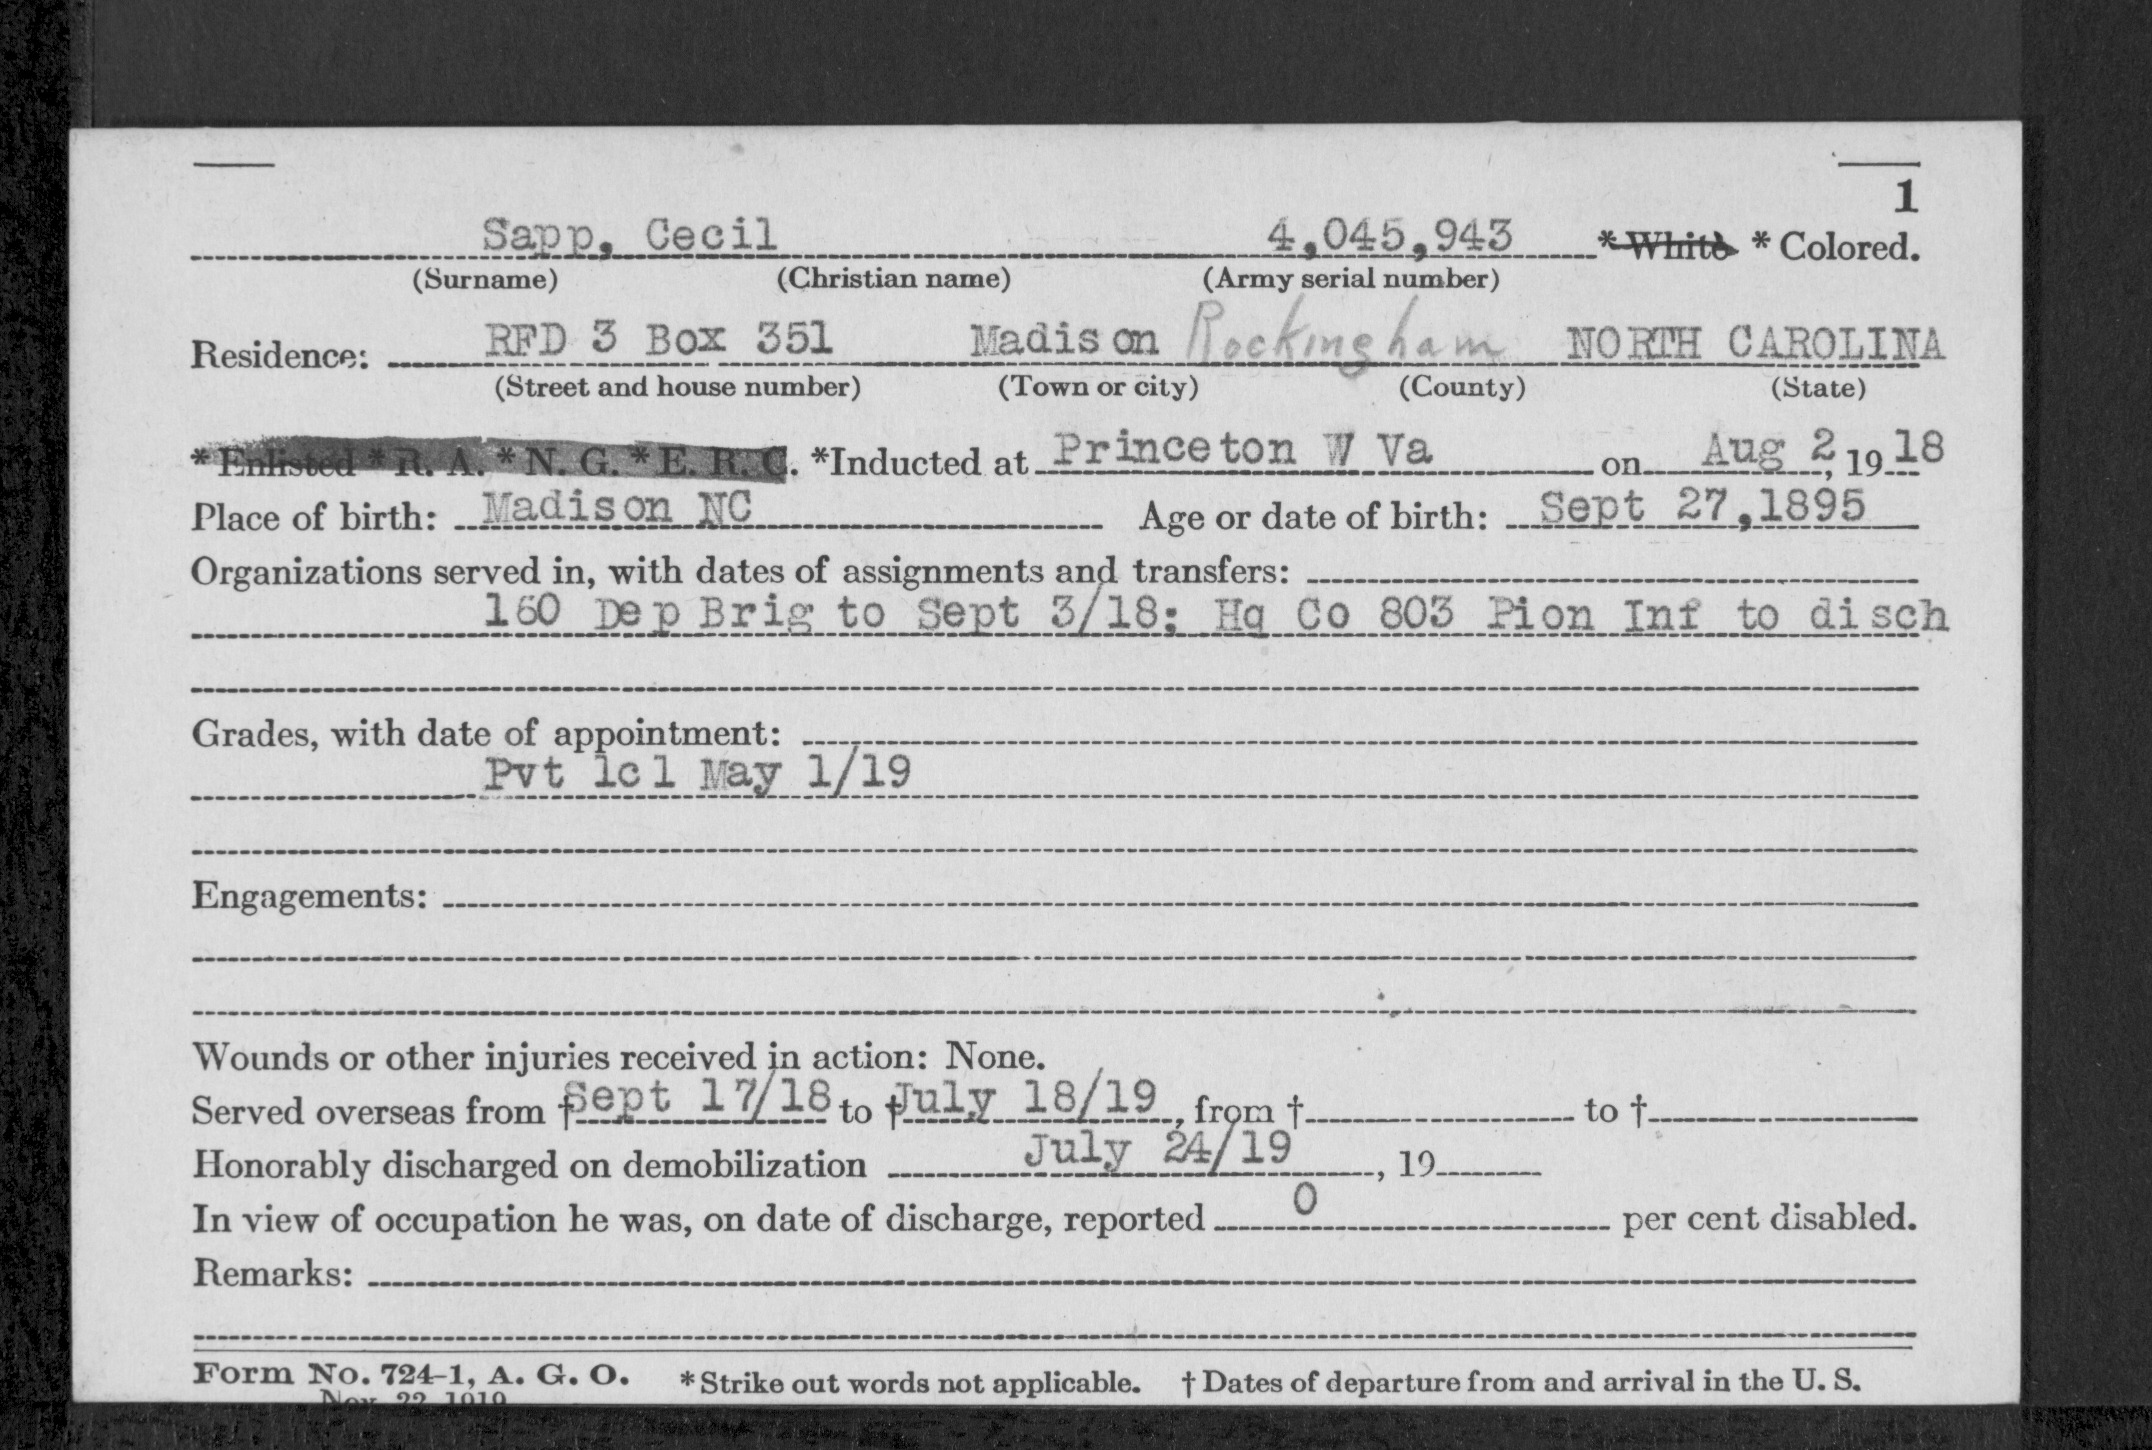 1
Sapp, Cecil 4,045,943 * White * Colored.
(Surname) (Christian name) (Army serial number)
Residence: RFD 3 Box 351 Madison Rockingham NORTH CAROLINA
(Street and house number) (Town or city) (County) (State)
* Enlisted * R. A. * N. G. * E. R. C. *Inducted at Princeton W Va on Aug 2, 19 18
Place of birth: Madison NC Age or date of birth: Sept 27,1895
Organizations served in, with dates of assignments and transfers:
160 Dep Brig to Sept 3/18; Hq Co 803 Pion Inf to disch
Grades, with date of appointment:
Pvt 1cl May 1/19
Engagements:
Wounds or other injuries received in action: None.
Served overseas from † Sept 17/18 to † July 18/19, from † to †
Honorably discharged on demobilization July 24/19, 19
In view of occupation he was, on date of discharge, reported 0 per cent disabled.
Remarks:
Form No. 724-1, A. G. O. * Strike out words not applicable. † Dates of departure from and arrival in the U. S.
Nov. 22, 1919